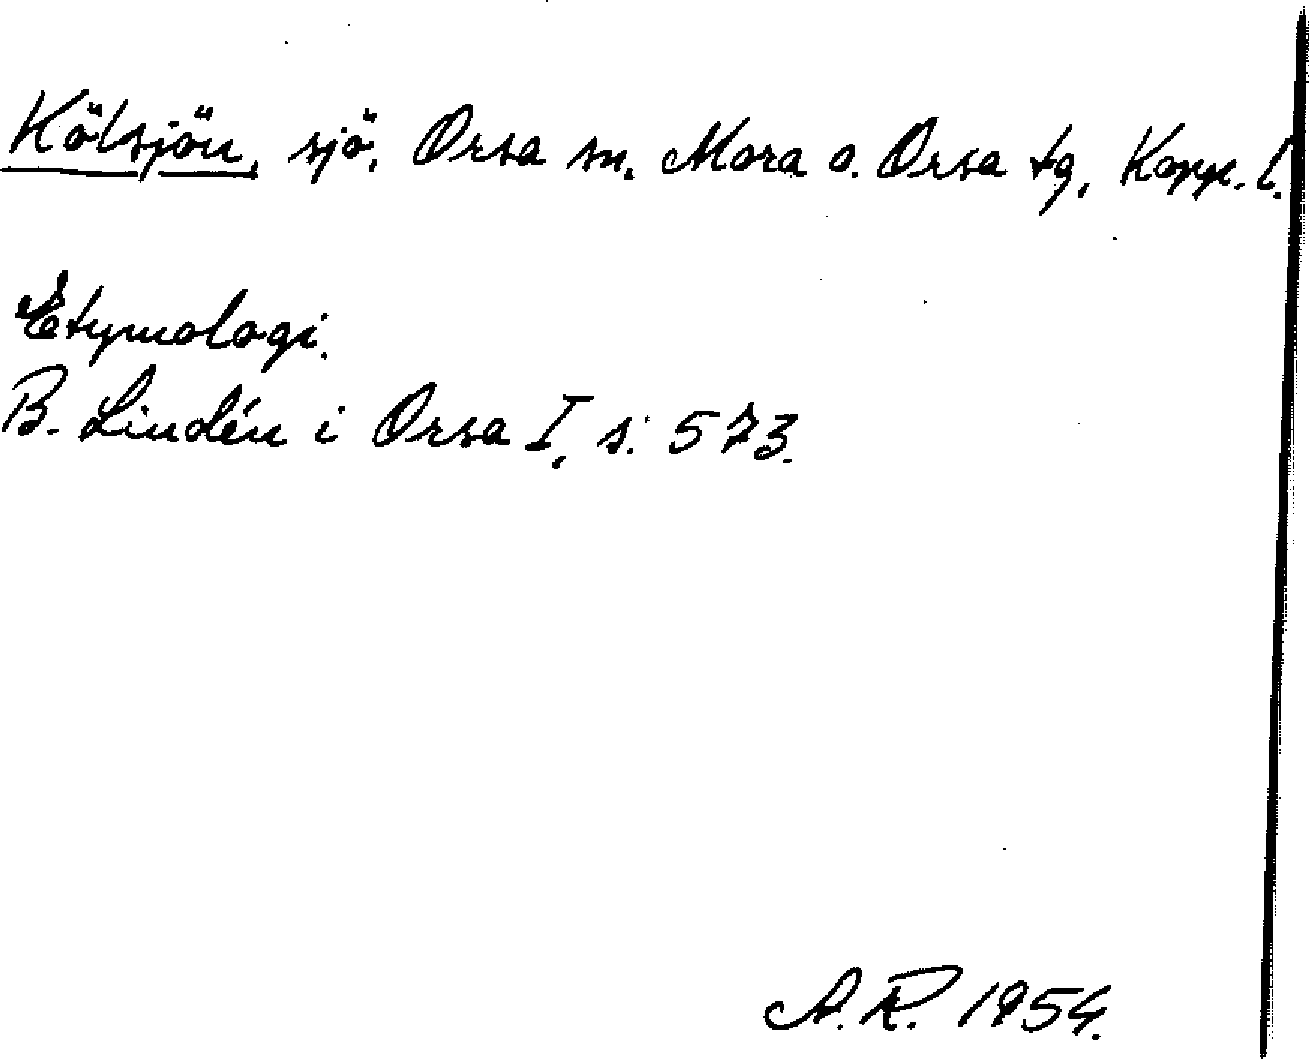 Kölsjön, sjö, Orsa sn. Mora o. Orsa tg, Kopp. l.
Etymologi.
B. Lindén i Orsa I, s. 573.
A.R. 1954.